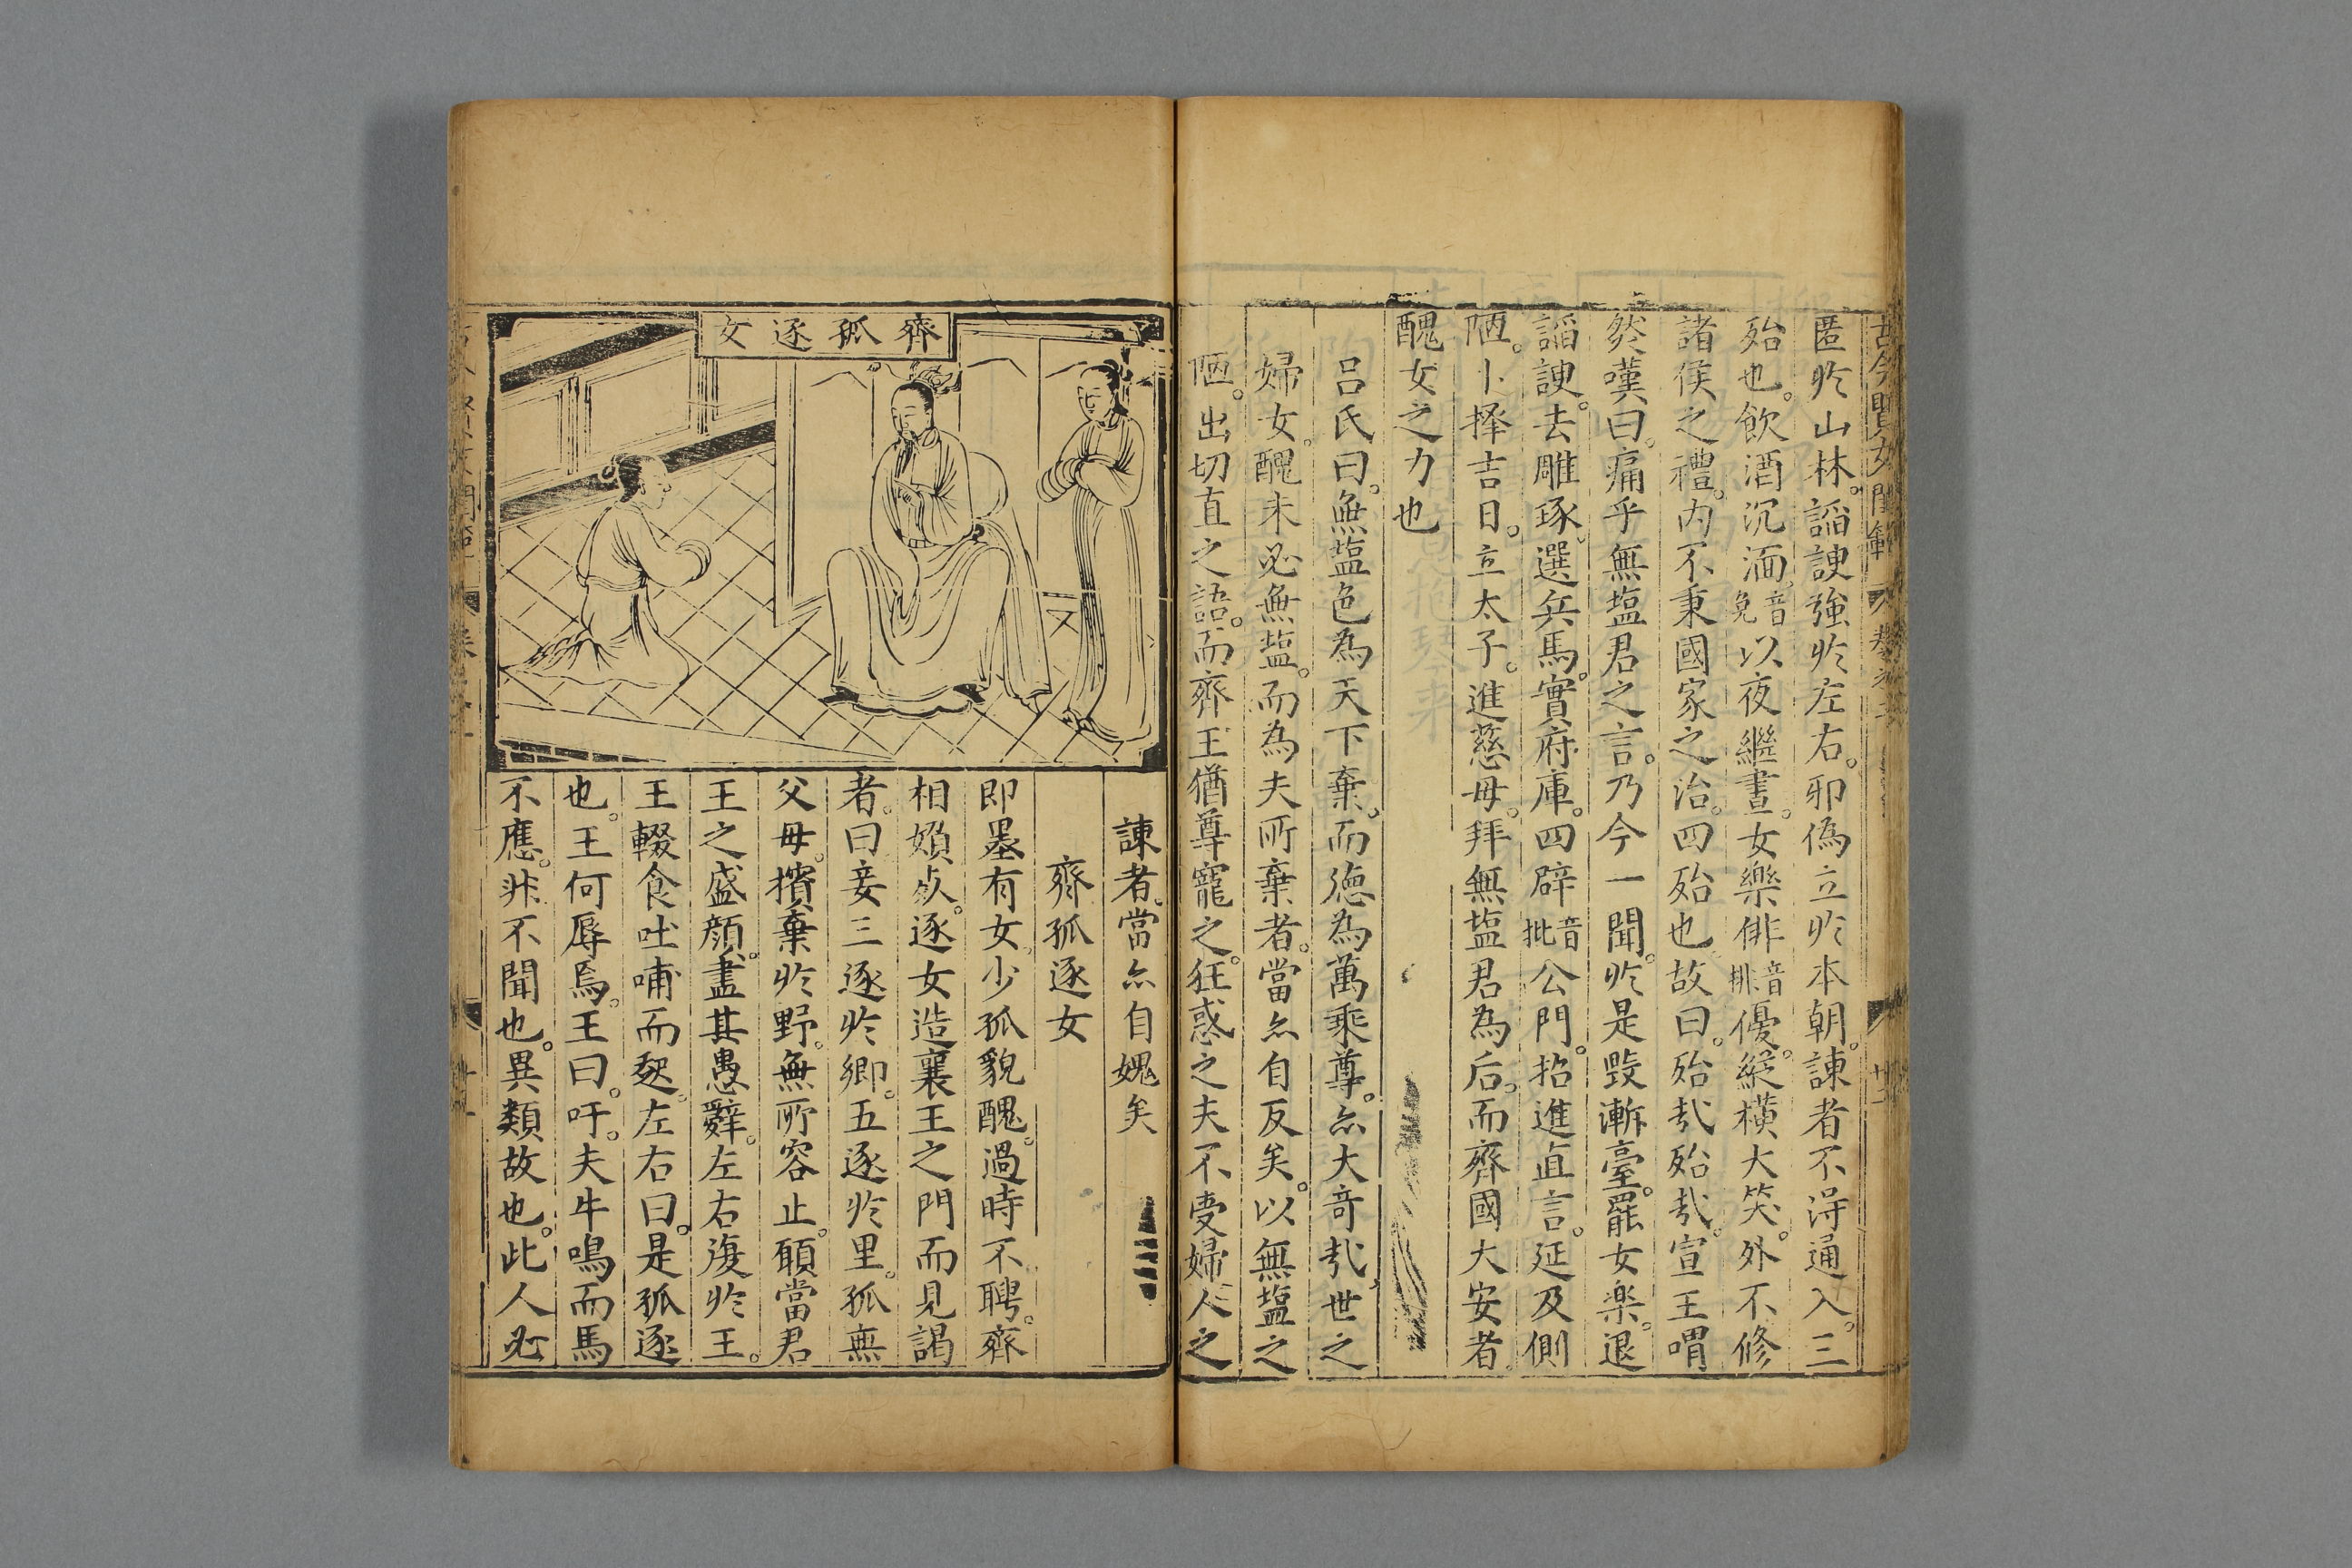 古今賢女閨範 卷之三 廿二
匿於山林。謟諛強於左右。邪偽立於本朝。諫者不淂通入。三
殆也。飲酒沉湎。音免以夜繼晝。女樂俳音排優。縱橫大笑。外不修
諸侯之禮。内不秉國家之治。四殆也。故曰。殆㢤殆㢤。宣王喟
然嘆曰。痛乎無塩君之言。乃今一聞。於是毀漸臺。罷女楽。退
謟諛。去雕琢。選兵馬。實府庫。四辟音批公門。招進直言。延及側
陋。卜擇吉日。立太子。進慈母。拜無塩君為后。而齊國大安者。
醜女之力也
呂氏曰。無塩色為天下棄。而德為萬乘尊。亦大竒㢤。世之
婦女。醜未必無塩。而為夫所棄者。當亦自反矣。以無塩之
陋。出切直之語。而齊王猶尊寵之。狂惑之夫不受婦人之
諫者。當亦自媿矣
齊孤逐女
齊孤逐女
即墨有女。少孤貌醜。過時不聘。齊
相嬪𡚱。逐女造襄王之門而見謁
者。曰妾三逐於鄉。五逐於里。孤無
父母。擯棄於野。無所容止。願當君
王之盛顔。盡其愚辭。左右復於王。
王輟食吐哺而起。左右曰。是孤逐
也。王何辱焉。王曰。吁。夫牛鳴而馬
不應。非不聞也。異類故也。此人必